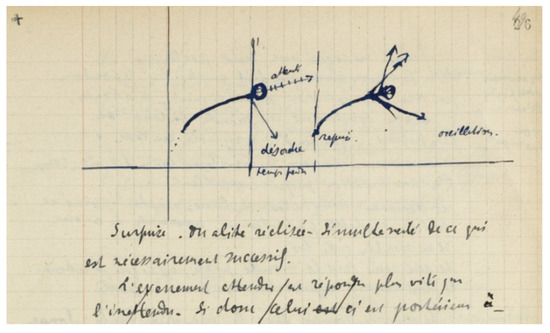 *
attente
désordre
temps perdu
repris.
oscillation.
Surprise. Dualité réalisée - Simultanéité de ce qui
est nécessairement successif.
L'événement attendu / est répondu plus vite que
l'inattendu. Si donc / celui-ci est postérieur à